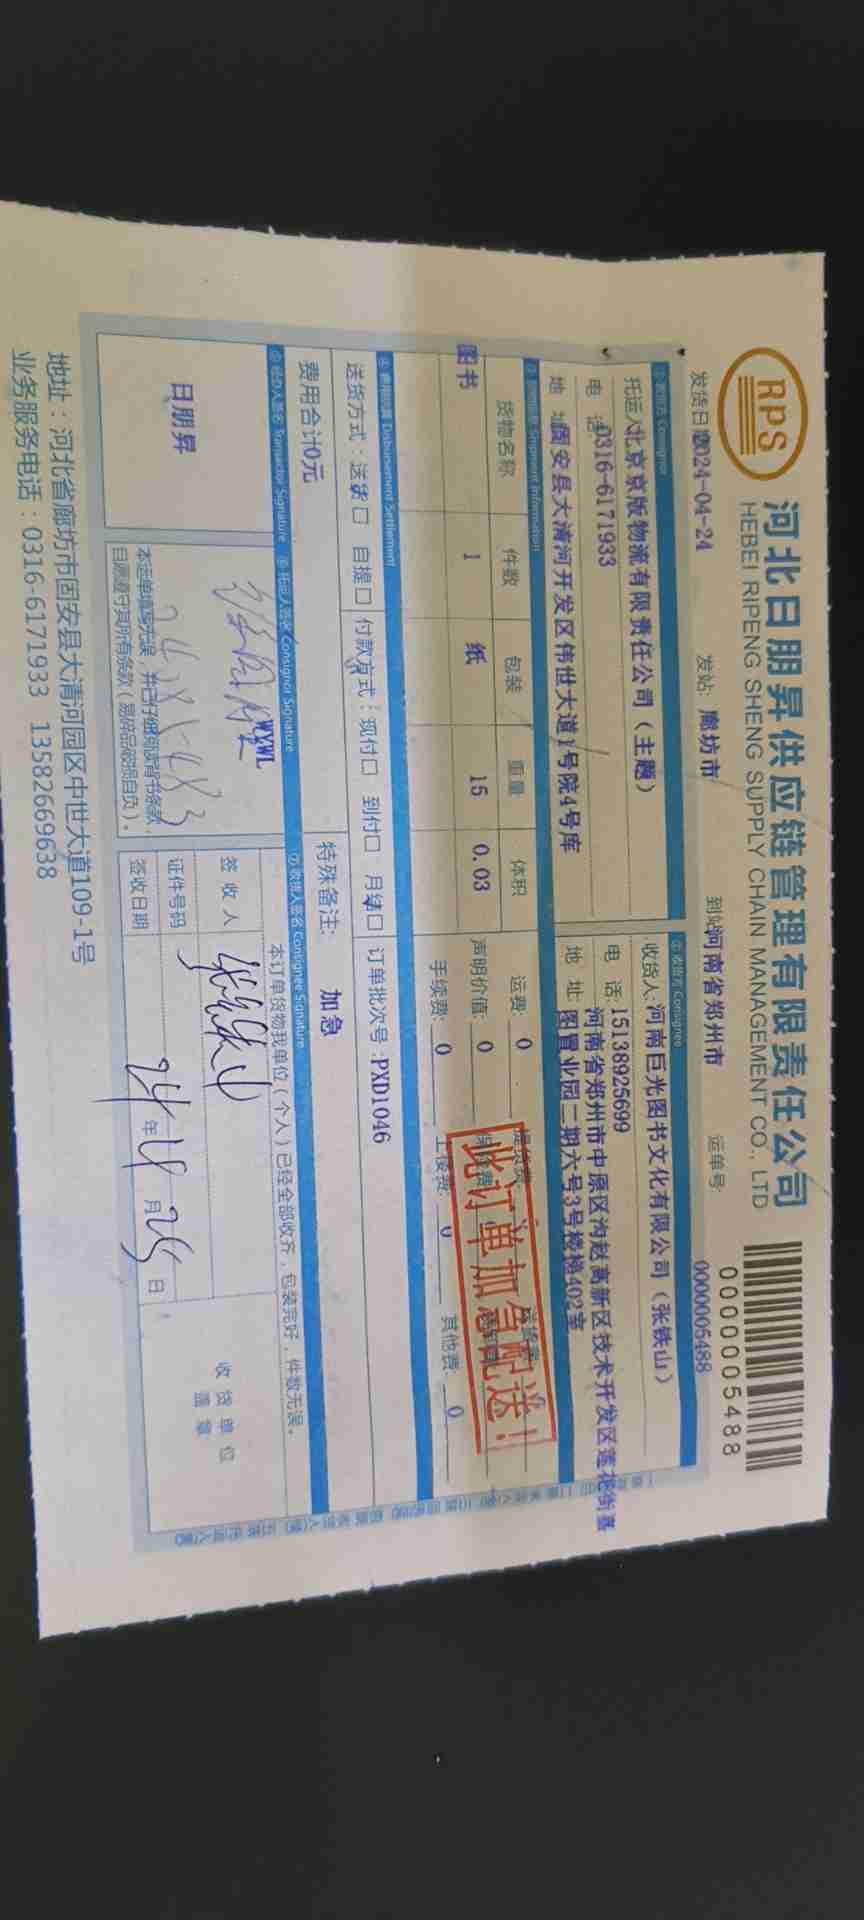 RPS
河北日朋昇供应链管理有限责任公司
HEBEI RIPENG SHENG SUPPLY CHAIN MANAGEMENT CO., LTD
0000005488
发货日期 2024-04-24 发站: 廊坊市 到站 河南省郑州市 运单号: 0000005488
① 发货方 Consignor ② 收货方 Consignee
托运人 北京京版物流有限责任公司（主题） 收货人: 河南巨光图书文化有限公司（张铁山）
电 话 0316-6171933 电 话: 15138925699
地 址 固安县大清河开发区伟世大道1号院4号库 地 址: 河南省郑州市中原区沟赵高新区技术开发区莲花街嘉
图置业园二期六号3号楼 402室
Shipment Information
货物名称 件数 包装 重量 体积 运费: 0 提货费:
图书 1 纸 15 0.03 声明价值: 0
手续费: 0 上楼费: 0 其他费: 0
此订单加急配送!
④ 费用结算 Disbursement Settlement
送货方式：送货口 自提口 付款方式：现付口 到付口 月结口 订单批次号:PXD1046
费用合计0元 特殊备注: 加急
⑤ 经办人签名 Transactor Signature ⑥ 托运人签名 Consignor Signature ⑦ 收货人签名 Consignee Signature
日朋昇
WYWL
本订单货物我单位（个人）已经全部收齐，包装完好，件数无误。
签 收 人 张铁山
证件号码
签收日期 24 年 4 月 25 日
收货单位
盖章
本运单填写无误，并已仔细阅读背书条款，
自愿遵守其所有条款（易碎品破损自负）。
地址：河北省廊坊市固安县大清河园区中世大道109-1号
业务服务电话：0316-6171933 13582669638